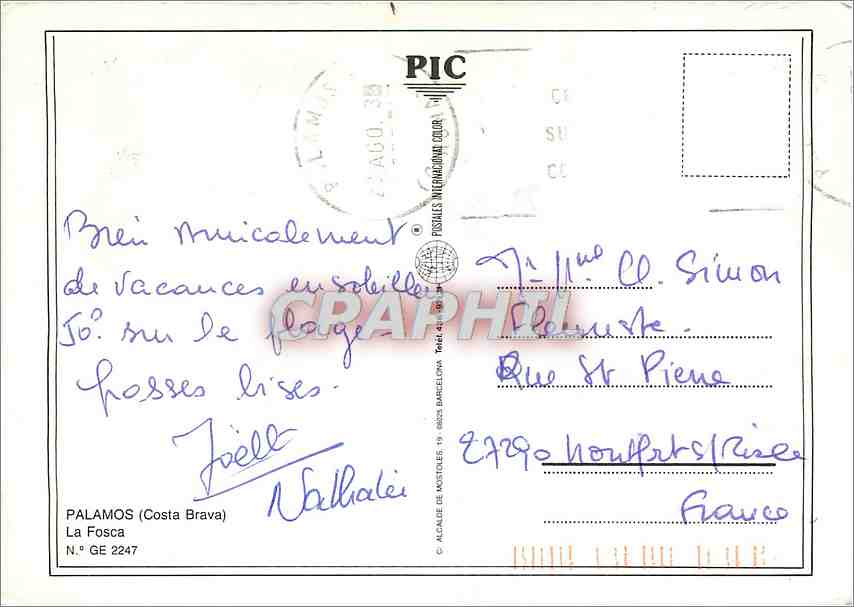 PIC
PALAMOS
AGO. 
Bien Amicalement
de vacances ensoleillées
50° sur la plage -
grosses bises.
Joëlle
Nathalie
PALAMOS (Costa Brava)
La Fosca
N.º GE 2247
POSTALES INTERNACIONAL COLOR
C/ ALCALDE DE MOSTOLES, 19 - 08025 BARCELONA
CRAPHIL
Mr Mme Cl. Simon
Fleuriste.
Rue St Pierre
27290 Montfort s/Risle
France